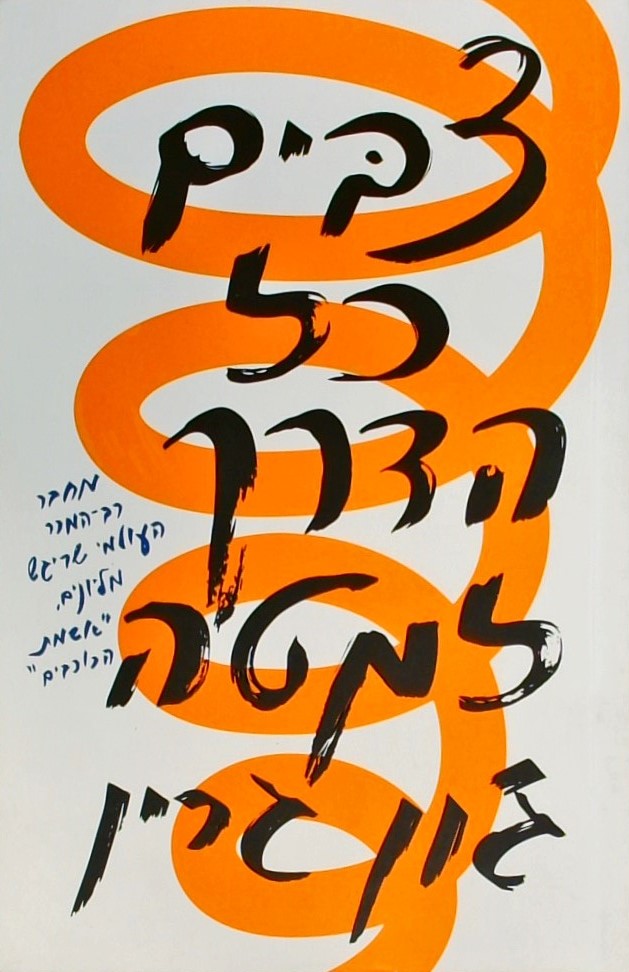 צבים
כל
הדרך
למטה
ג'ון גרין
מחבר
רב-המכר
העולמי שריגש
מליונים,
"אשמת
הכוכבים"